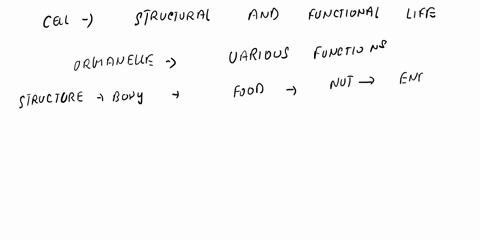 CELL -> STRUCTURAL AND FUNCTIONAL LIFE
ORGANELLE -> VARIOUS FUNCTIONS
STRUCTURE -> BODY -> FOOD -> NUT -> ENE